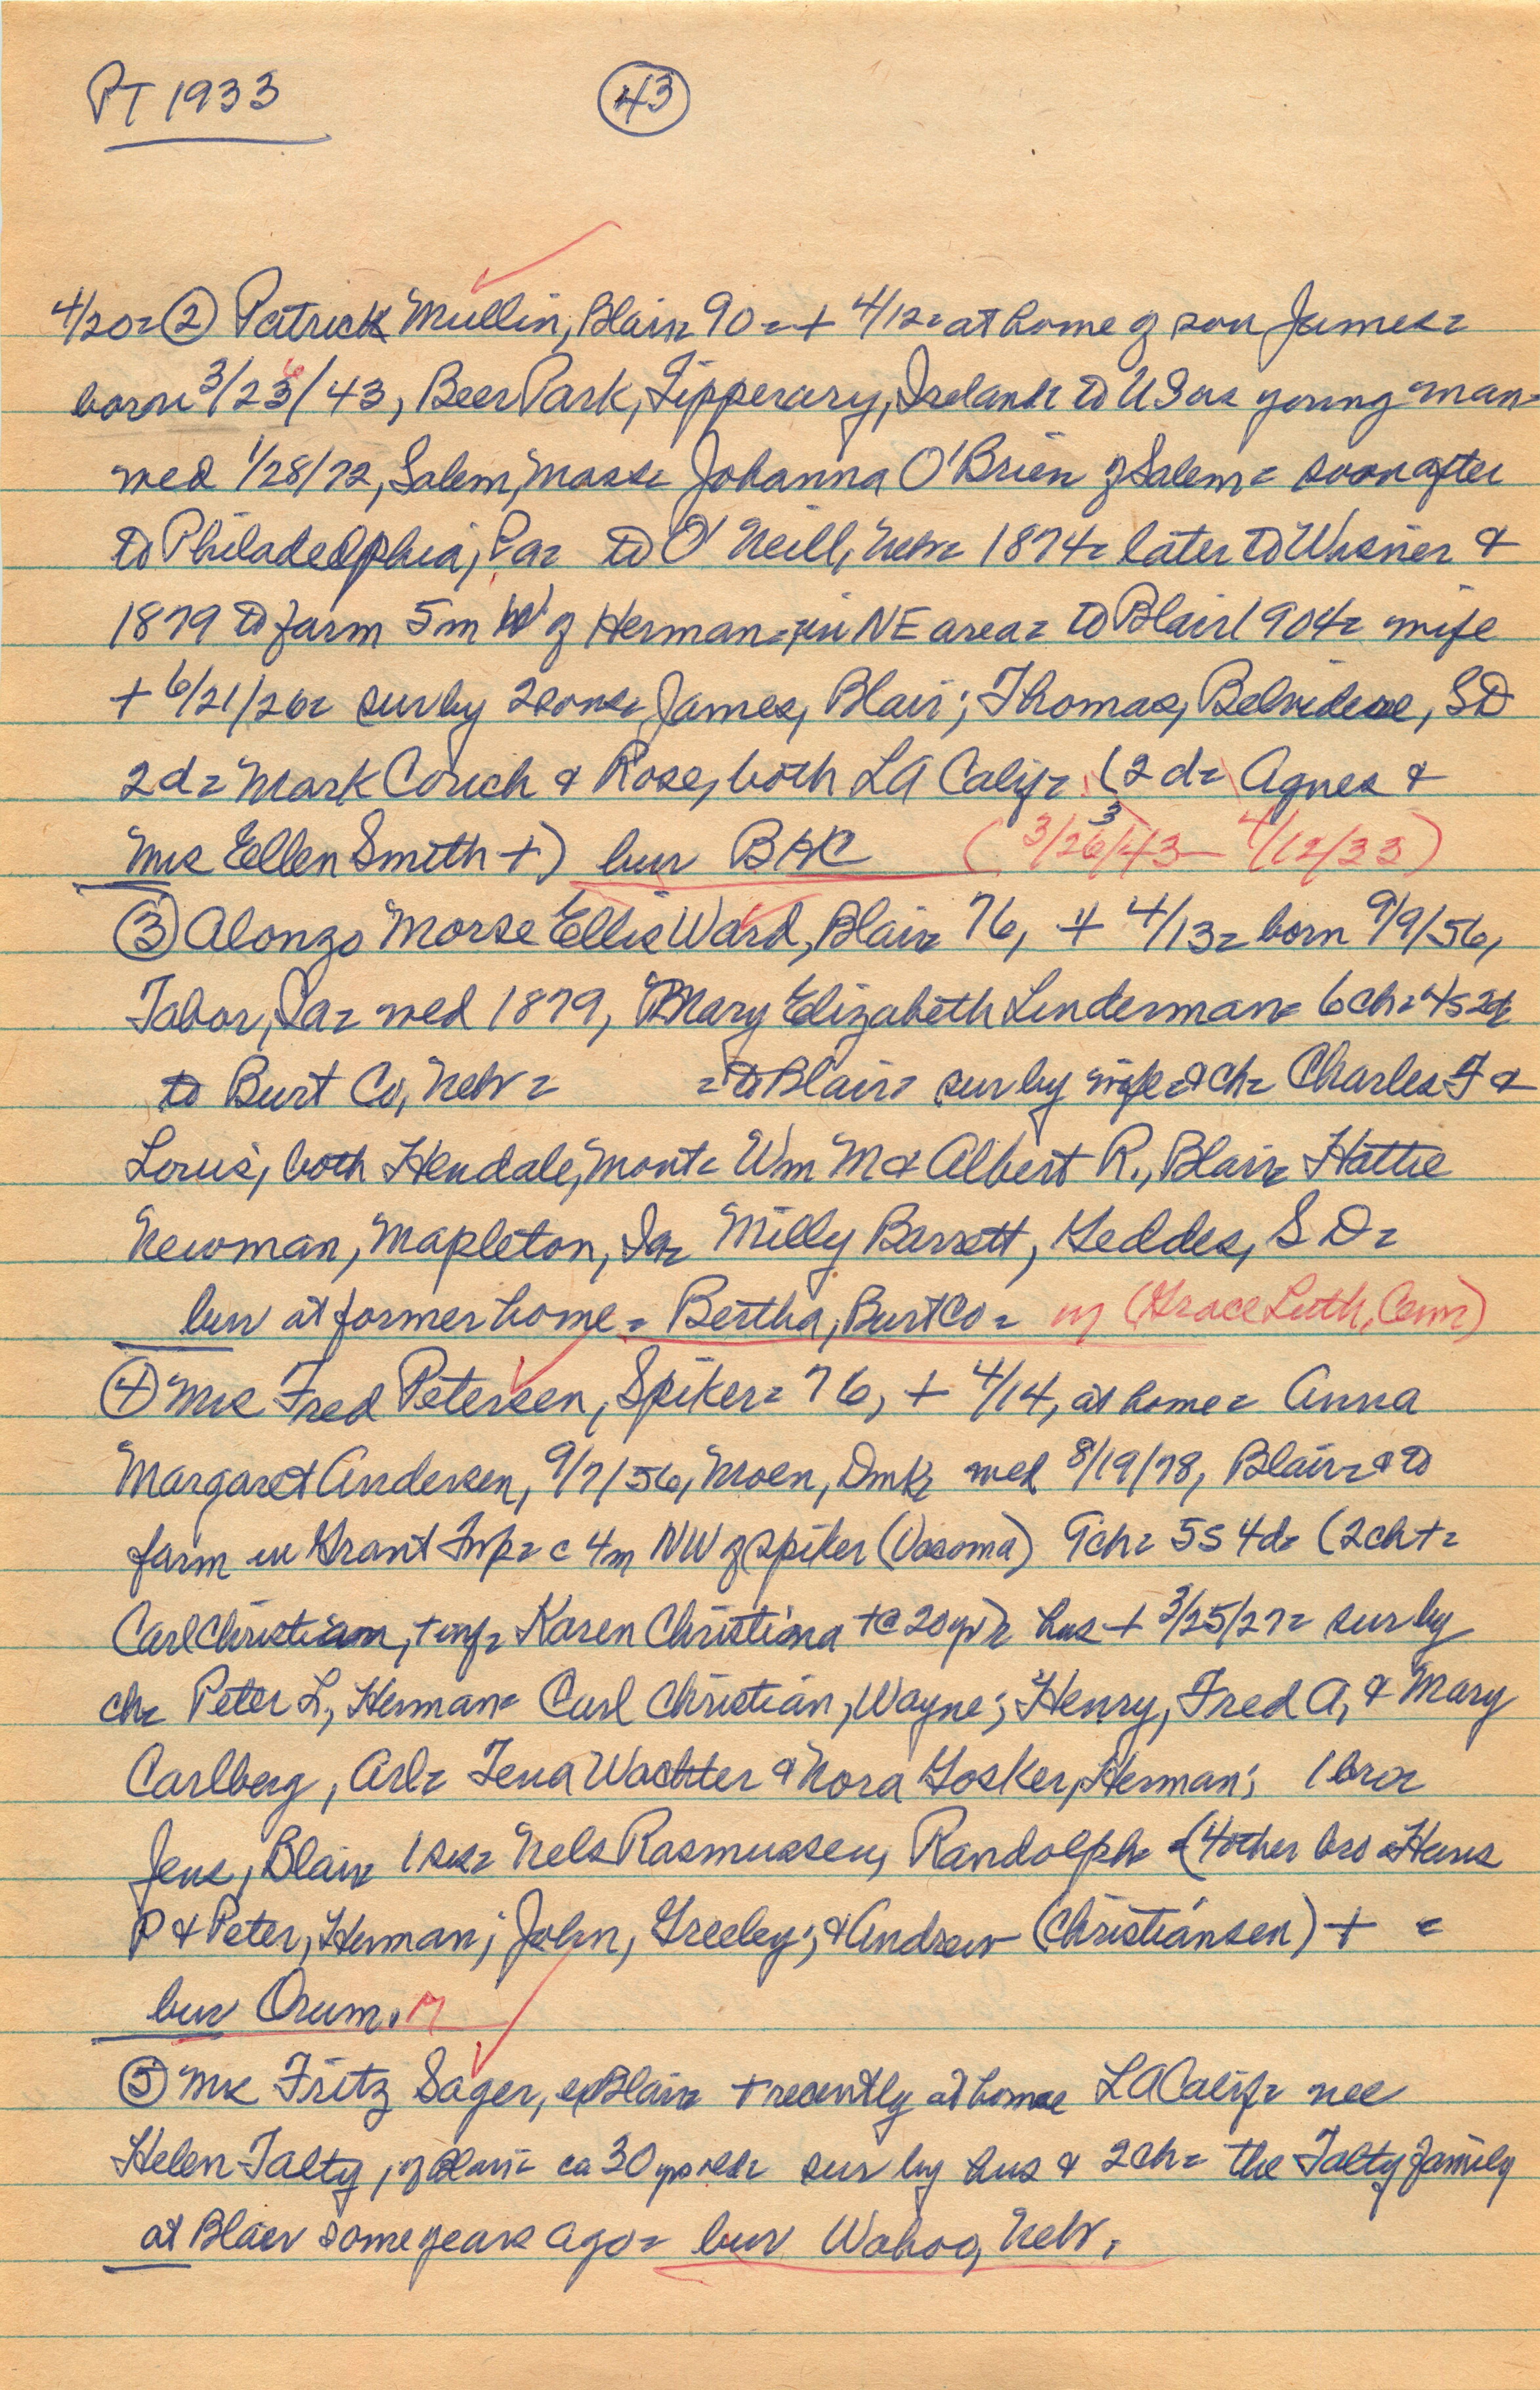 PT 1933 43
4/20= ② Patrick Mullin, Blair= 90= + 4/12= at home of son James=
born 3/23/43, Beer Park, Tipperary, Ireland= to US as young man=
wed 1/28/72, Salem, Mass= Johanna O'Brien of Salem= soon after
to Philadelphia, Pa= to O'Neill, Nebr= 1874= later to Wisner &
1879 to farm 5m W of Herman= in NE area= to Blair 1904= wife
+ 6/21/26= sur by 2 sons= James, Blair; Thomas, Belvidere, SD
2d= Mark Couch & Rose, both LA Calif= (2d= Agnes &
Mrs Ellen Smith +) bur BHC (3/26/43 - 4/12/33)
③ Alonzo Morse Ellis Ward, Blair= 76, + 4/13= born 9/9/56,
Tabor, Ia= wed 1879, Mary Elizabeth Linderman= 6ch= 4s 2d
to Burt Co, Nebr= = to Blair= sur by wife & ch= Charles F &
Louis, both Mont= Wm M & Albert R., Blair= Hattie
Newman, Mapleton, Ia= Milly Barrett, Geddes, SD=
bur at former home= Bertha, Burt Co= M (Grace Luth, Cem)
④ Mrs Fred Petersen, Spiker= 76, + 4/14, at home= Anna
Margaret Andersen, 9/7/56, Moen, Dmk= wed 8/19/78, Blair= & to
farm in Grant Twp= c 4m NW of Spiker (Vacoma) 9ch= 5s 4d= (2ch+=
Carl Christian, + inf= Karen Christina + @ 20 yr)= hus + 3/25/27= sur by
ch= Peter L, Herman= Carl Christian, Wayne; Henry, Fred A, & Mary
Carlberg, Arl= Tena Wachter & Nora Gosker, Herman; 1 bro=
Jens, Blair= 1 sis= Nels Rasmussen, Randolph= (4 other bro= Hans
P & Peter, Herman; John, Greeley; & Andrew (Christiansen) + =
bur Orum. M
⑤ Mrs Fritz Sager, ex Blair= + recently at home LA Calif= nee
Helen Talty, of Blair= ca 30 yrs old= sur by hus & 2ch= the Talty family
at Blair some years ago= bur Wahoo, Nebr.